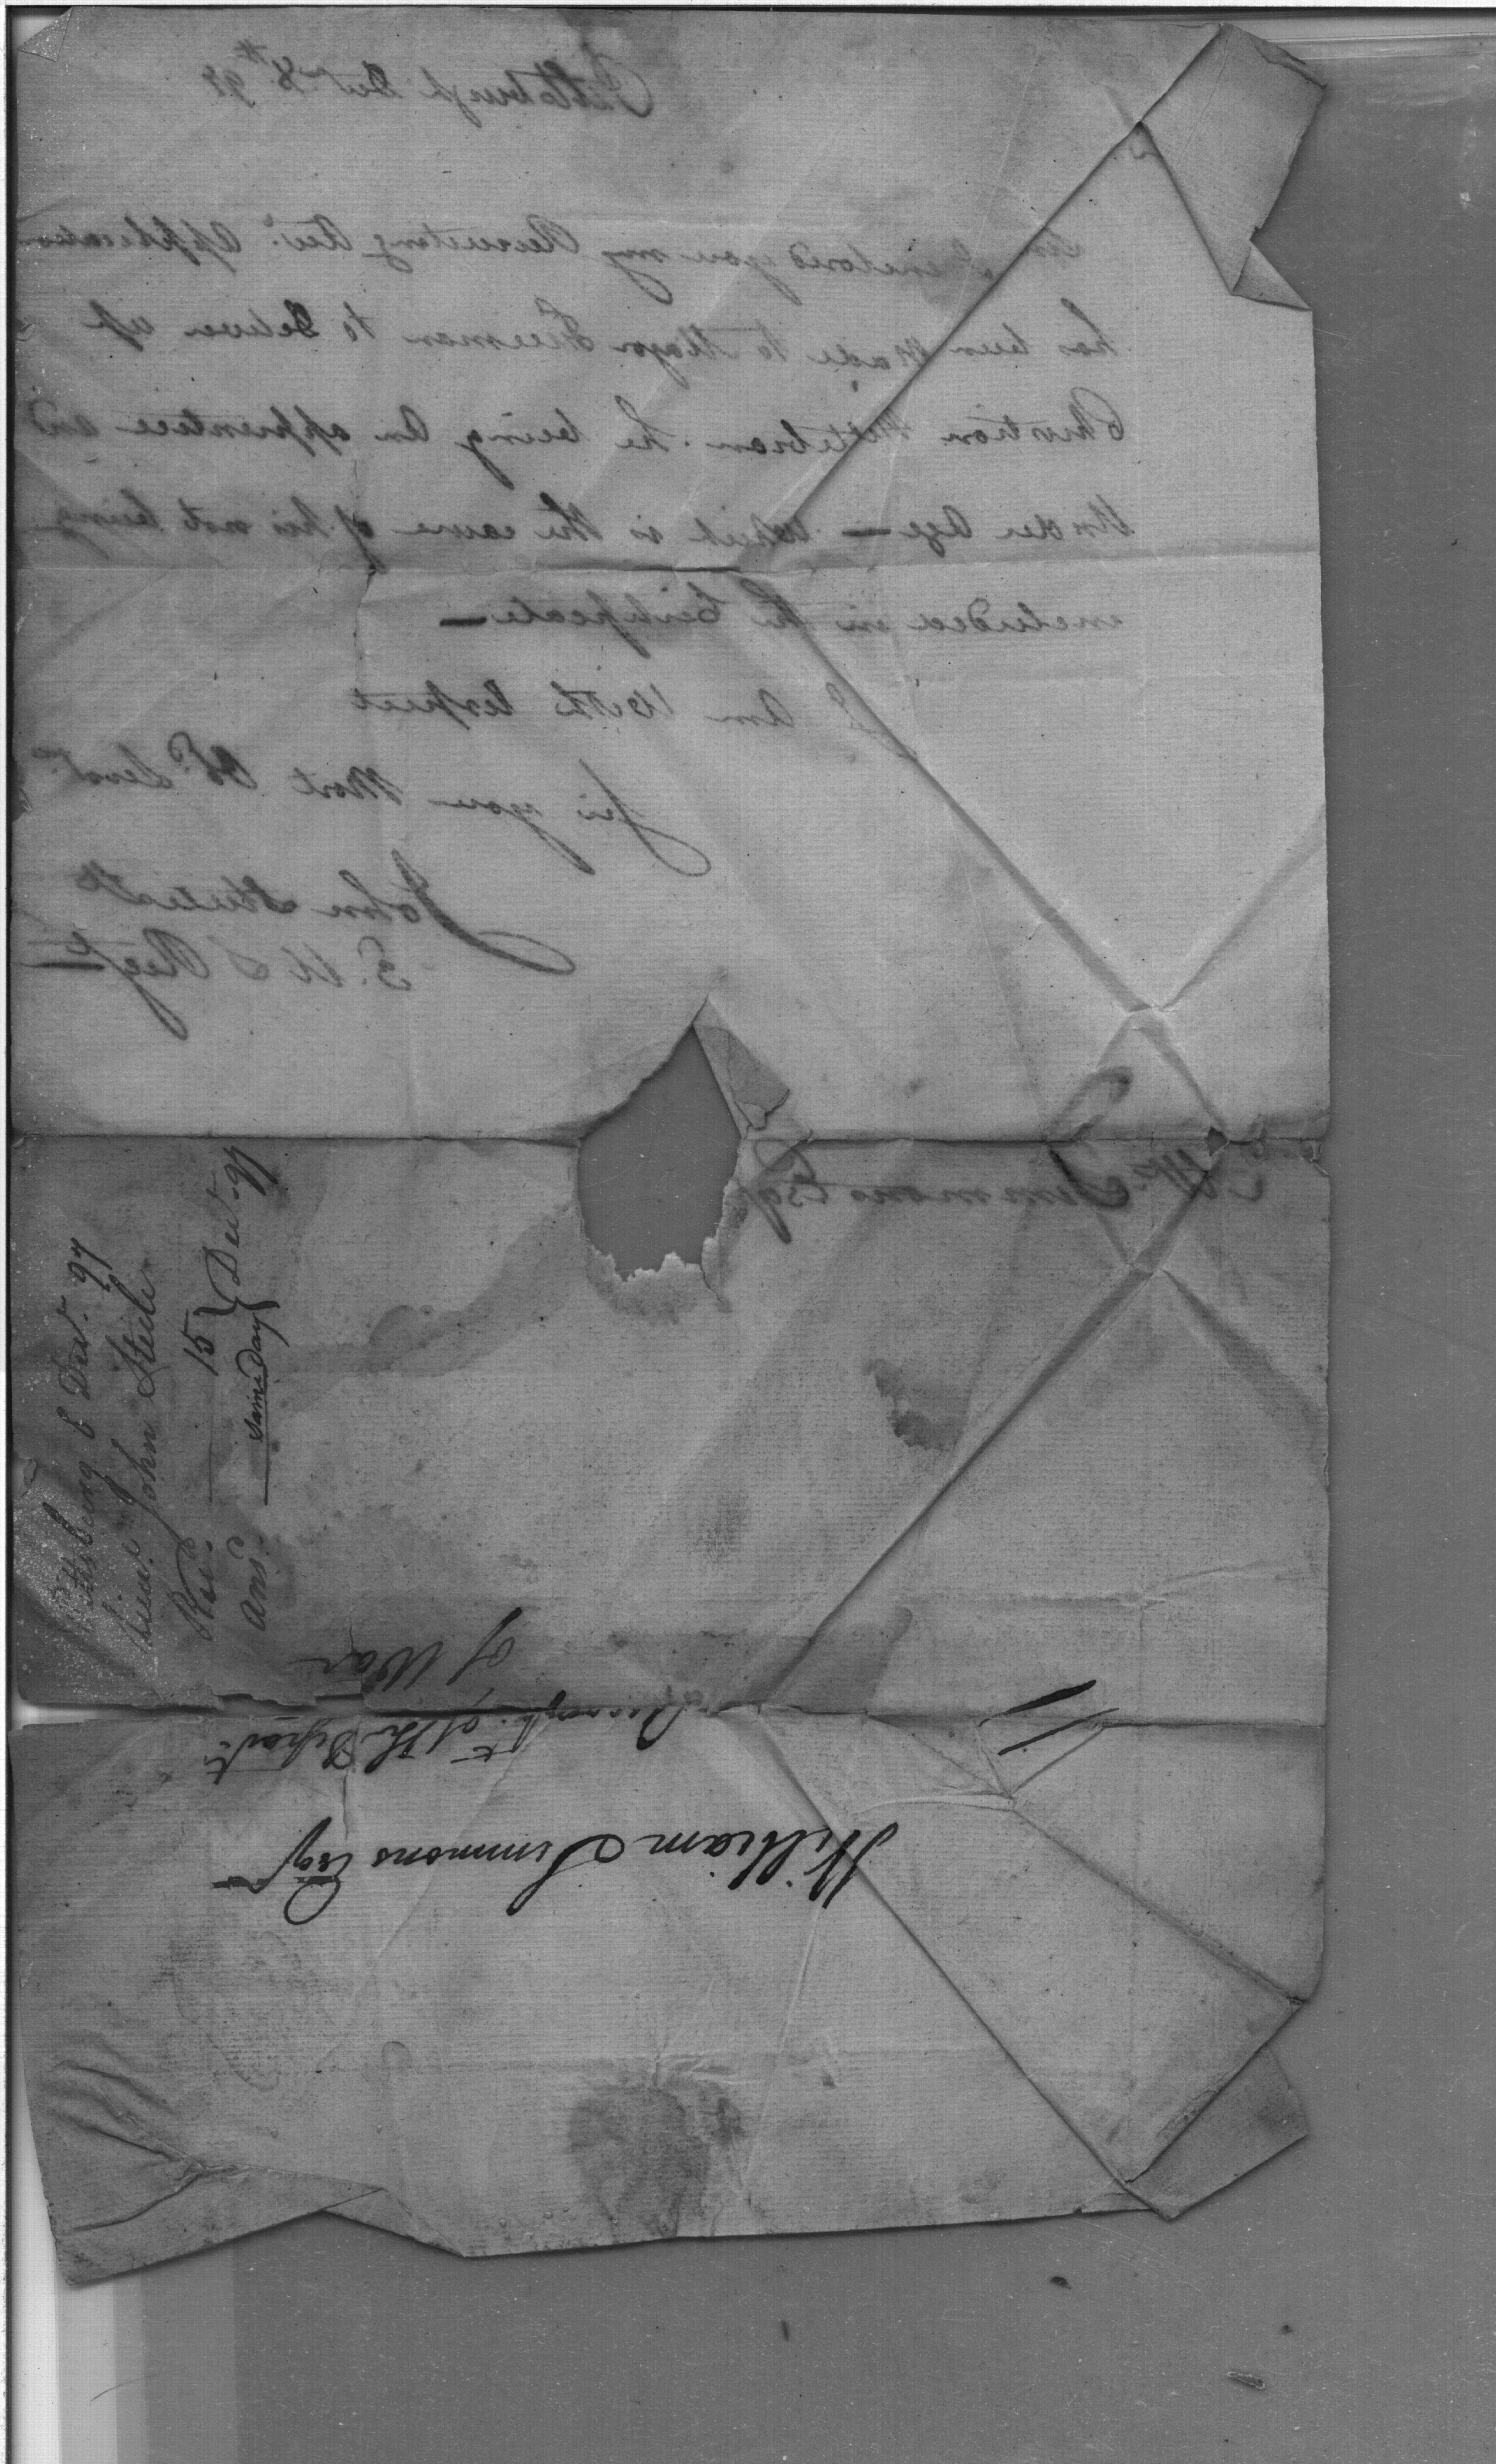 Pittsburgh Decr 8th 97
Sir I inclosd you my Recruiting Acct. application
has been made to Major Freeman to Deliver up
Christian he being An apprentice and
Under Age — Which is the cause of his not being
included in the Certificate —
I Am With Respect
Sir your Most Obt. Servt.
John Steele
3. U S Regt
Wm Simmons Esqr
Pittsburg 8 Decr. 97
Lieut John Steele
Recd. 15 } Decr 97
Ans. same Day
William Simmons Esqr
Accompt. of the Depart.
of War